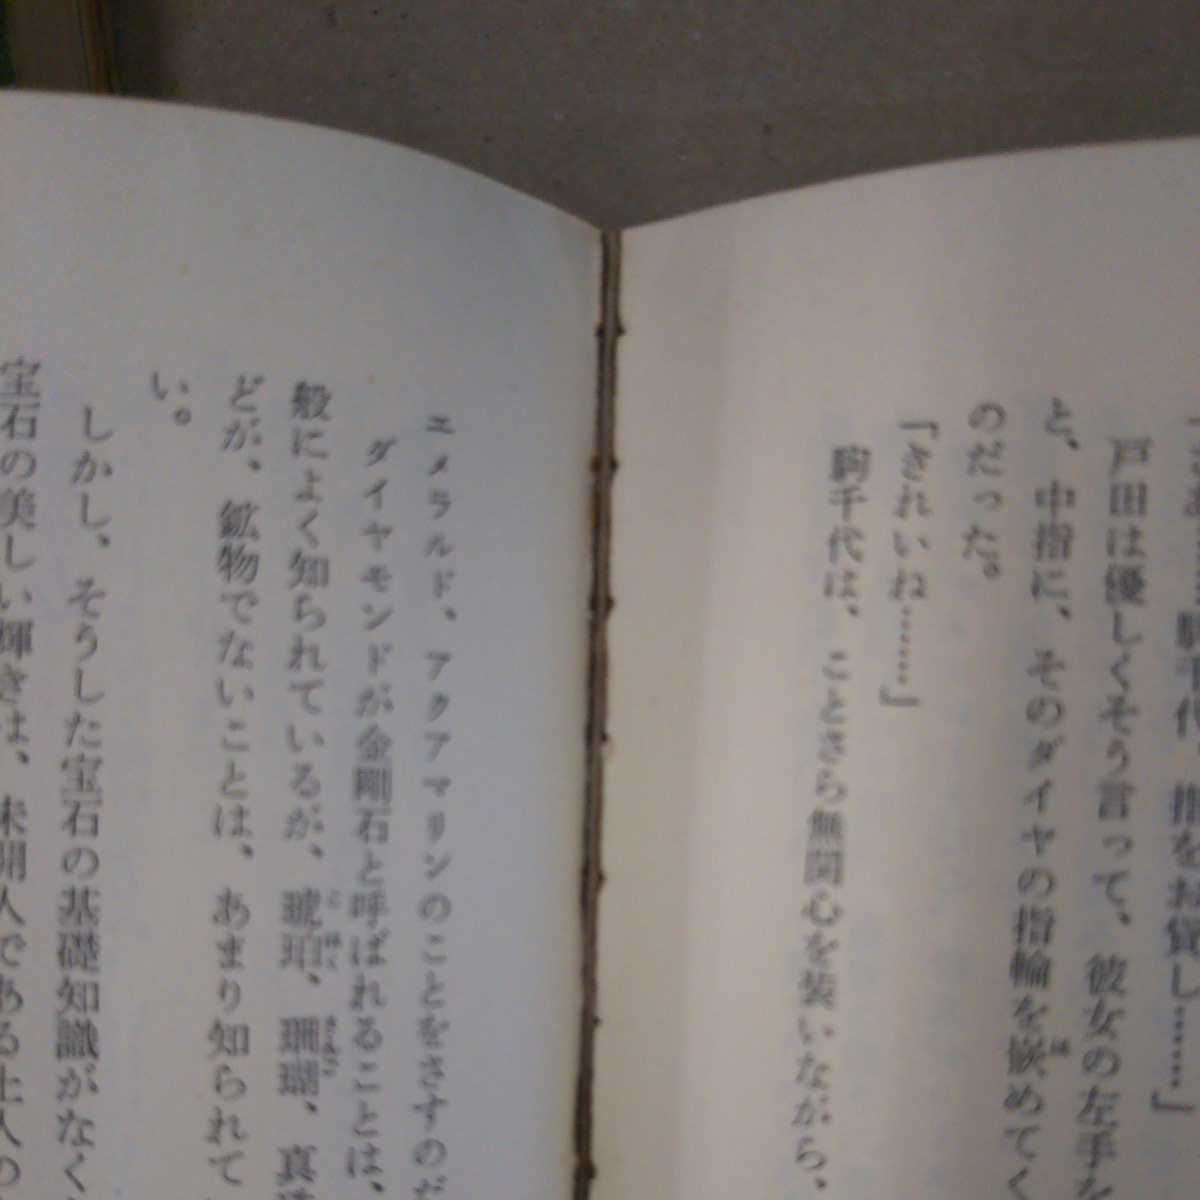 駒千代、指をお貸し……」
戸田は優しくそう言って、彼女の左手を
と、中指に、そのダイヤの指輪を嵌めてく
のだった。
「きれいね……」
駒千代は、ことさら無関心を装いながら、
エメラルド、アクアマリンのことをさすのだ
ダイヤモンドが金剛石と呼ばれることは、
般によく知られているが、琥珀、珊瑚、真
どが、鉱物でないことは、あまり知られて
い。
しかし、そうした宝石の基礎知識がなく
宝石の美しい輝きは、未開人である土人の